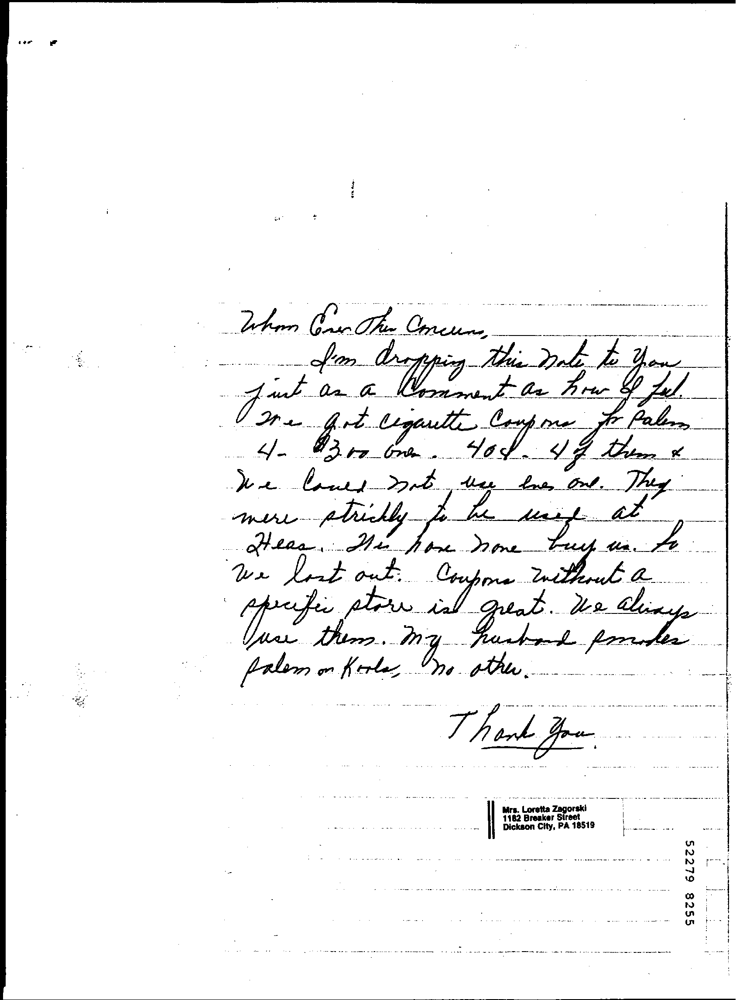 Whom Ever This Concerns,
I'm dropping this note to You
just as a Comment as how I feel.
We got cigarette Coupons for Salem
4- $3.00 ones. 40¢. 4 of them &
We Could not use one. They
were strickly to be used at
Hess. We have none buy us. So
We lost out. Coupons without a
specific store is great. We always
use them. My husband smokes
Salem or Kools, no other.
Thank You.
Mrs. Loretta Zagorski
1182 Breaker Street
Dickson City, PA 18519
52279 8255